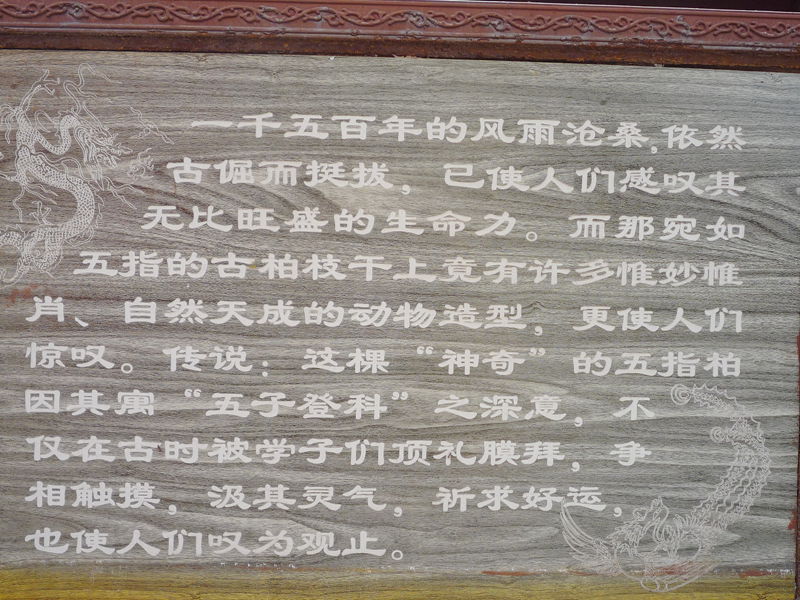 一千五百年的风雨沧桑,依然
古倔而挺拔，已使人们感叹其
无比旺盛的生命力。而那宛如
五指的古柏枝干上竟有许多惟妙惟
肖、自然天成的动物造型，更使人们
惊叹。传说：这棵“神奇”的五指柏
因其寓“五子登科”之深意，不
仅在古时被学子们顶礼膜拜，争
相触摸，汲其灵气，祈求好运，
也使人们叹为观止。